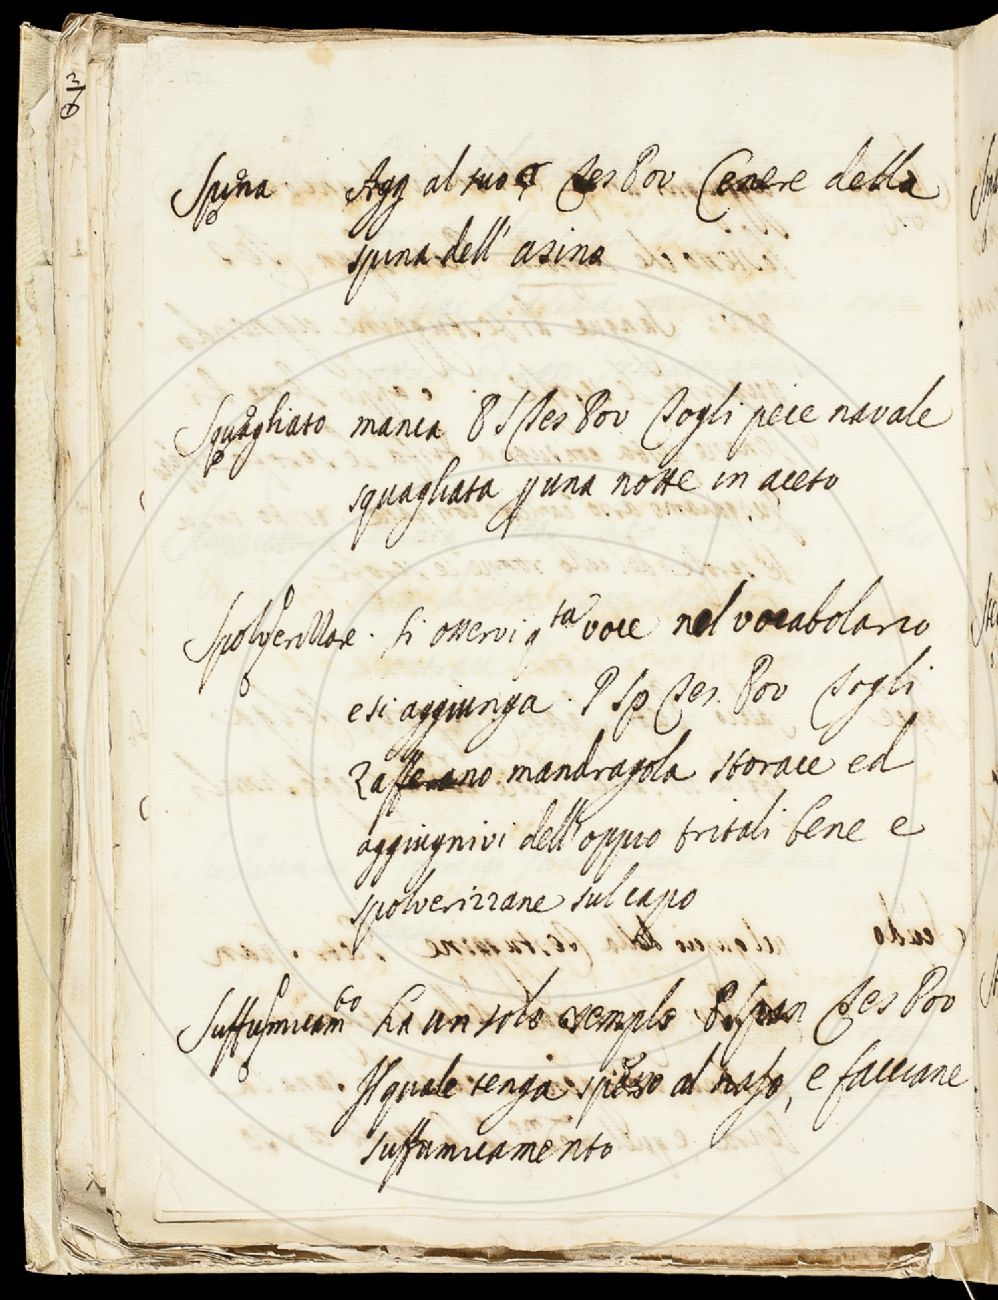 3/6
Spina Agg al suo § Tes Pov Cenere della
spina dell' asino
Squagliato manca P S Tes Pov Togli pece navale
squagliata p una notte in aceto
Spolverizzare. Si osservi q.ta voce nel vocabolario
e si aggiunga. P Sp Tes. Pov Togli
Zafferano mandragola storace ed
aggiugnivi dell' oppio tritali bene e
spolverizzane sul capo
Suffumicam.to ha un solo esemplo P. Tes Pov
Il quale tenga spesso al naso, e facciane
suffumicamento